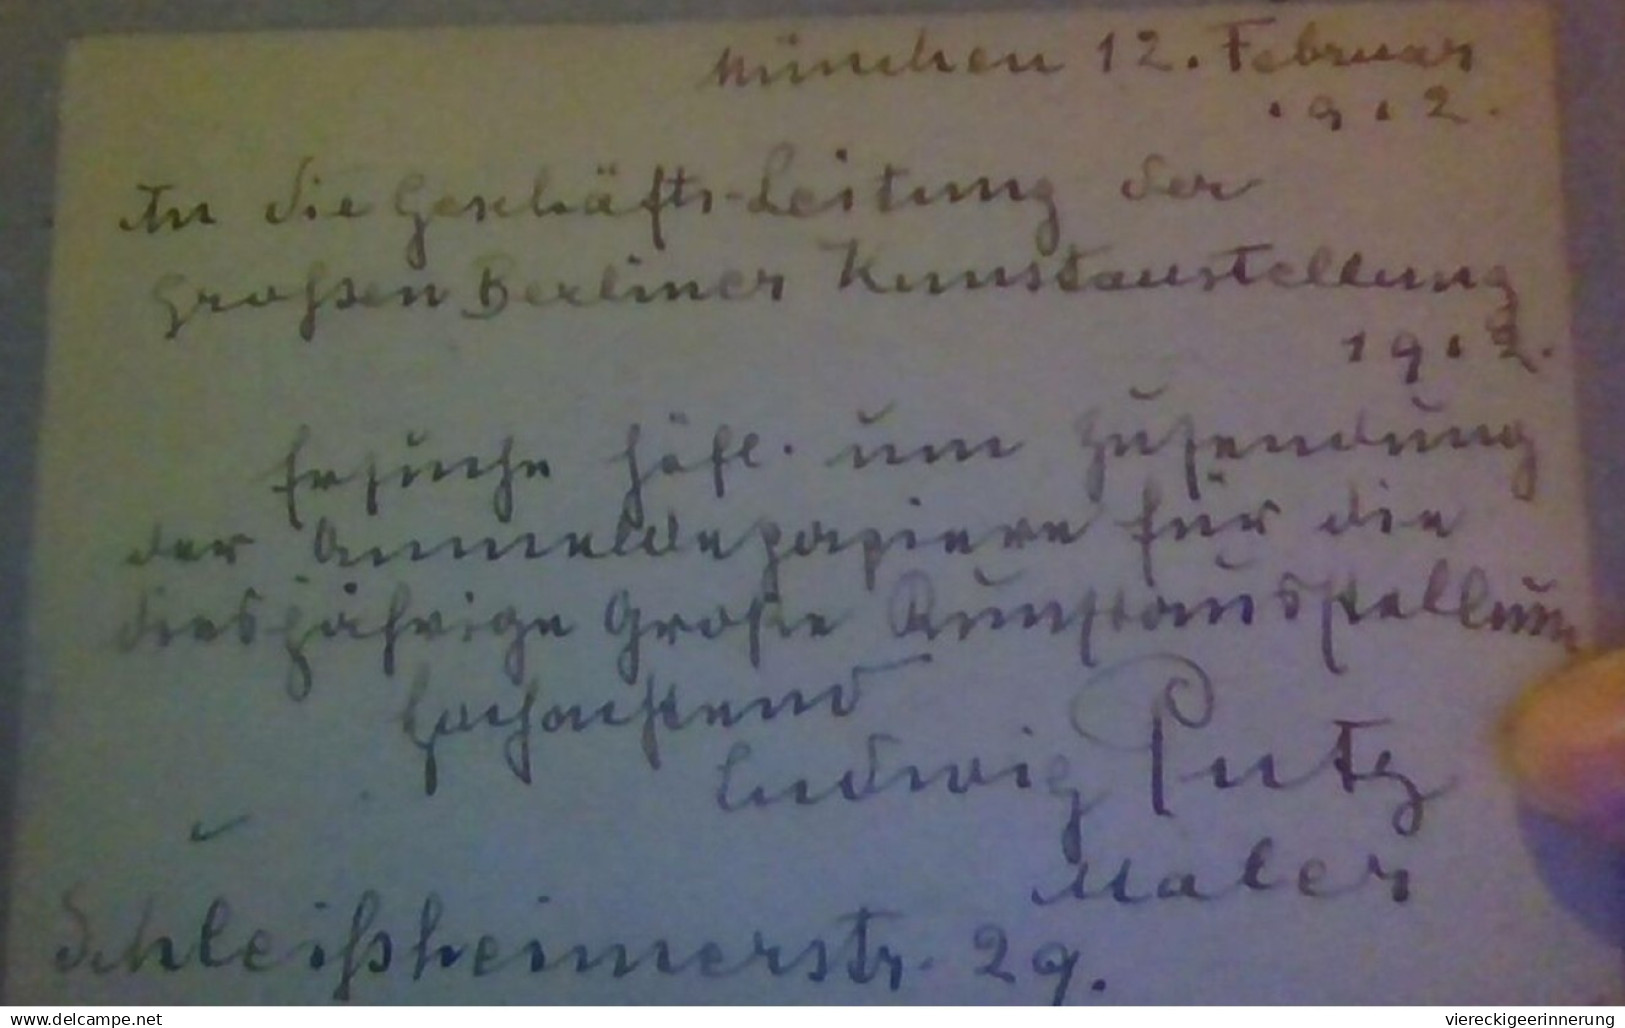 München 12. Februar
1912.
An die Geschäfts-Leitung der
Großen Berliner Kunstaustellung
1912.
Ersuche höfl. um Zusendung
der Anmeldepapiere für die
diesjährige Große Kunstausstellung
Hochachtend
Ludwig Putz
Maler
Schleißheimerstr. 29.
www.delcampe.net
viereckigeerinnerung